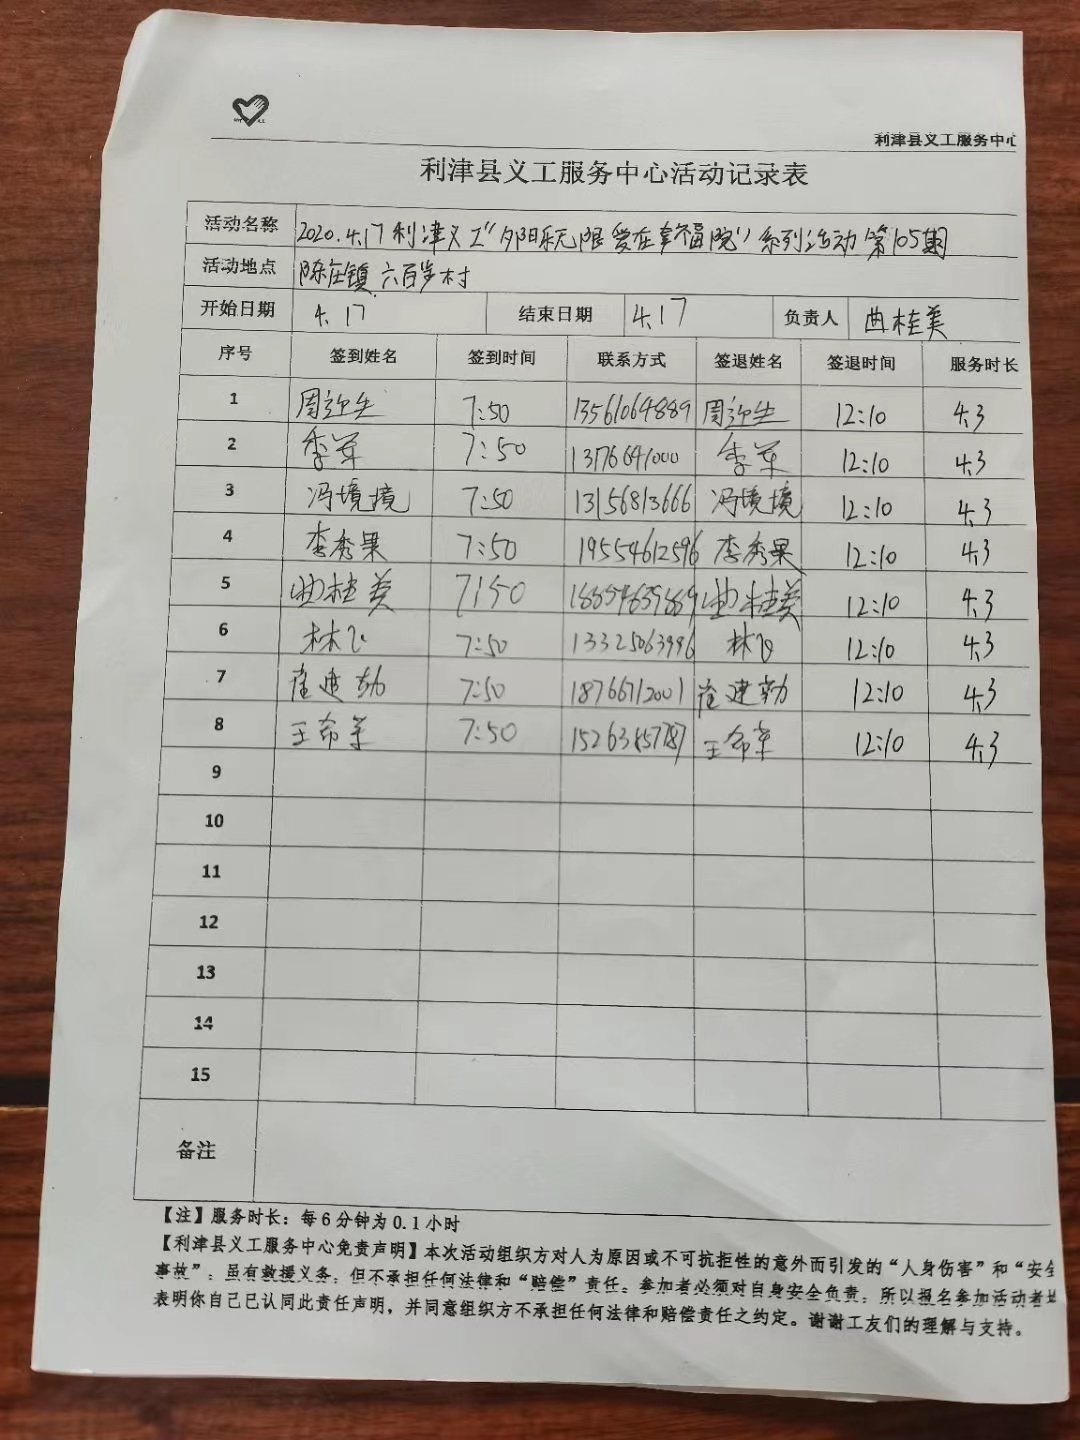 利津县义工服务中心
利津县义工服务中心活动记录表
活动名称 2020.4.17利津义工"夕阳乐无限 爱在幸福院"系列活动 第105期
活动地点 陈庄镇 六百步村
开始日期 4.17 结束日期 4.17 负责人 曲桂美
序号 签到姓名 签到时间 联系方式 签退姓名 签退时间 服务时长
1 周迎生 7:50 13561064889 周迎生 12:10 4.3
2 季军 7:50 季军 12:10 4.3
3 冯境境 7:50 13156813666 冯境境 12:10 4.3
4 李秀果 7:50 19554612596 李秀果 12:10 4.3
5 曲桂美 7:50 曲桂美 12:10 4.3
6 林飞 7:50 13325063996 林飞 12:10 4.3
7 崔建勃 7:50 18766712001 崔建勃 12:10 4.3
8 王希军 7:50 王希军 12:10 4.3
9
10
11
12
13
14
15
备注
【注】服务时长：每6分钟为0.1小时
【利津县义工服务中心免责声明】本次活动组织方对人为原因或不可抗拒性的意外而引发的“人身伤害”和“安全
事故”，虽有救援义务，但不承担任何法律和“赔偿”责任。参加者必须对自身安全负责，所以报名参加活动者
表明你自己已认同此责任声明，并同意组织方不承担任何法律和赔偿责任之约定。谢谢工友们的理解与支持。